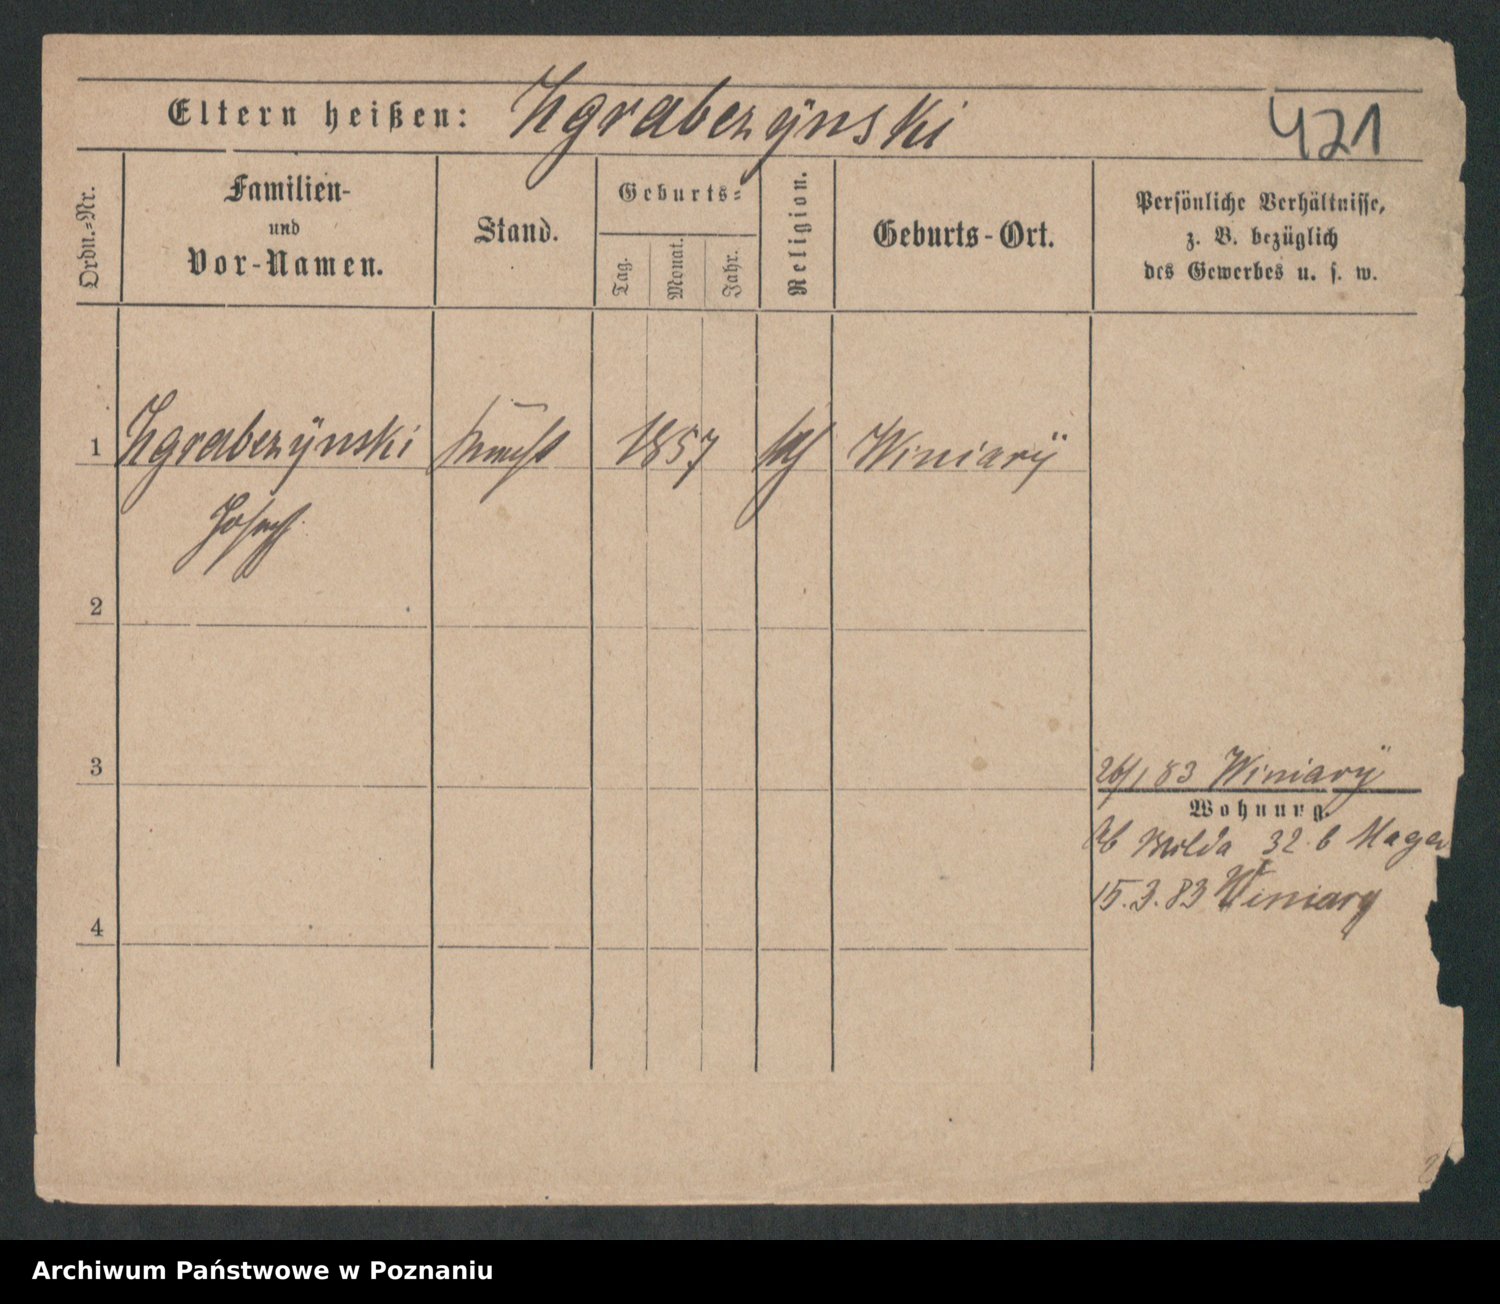 Eltern heißen: Zgrabczÿnski
421
Ordn.-Nr.
Familien-
und
Vor-Namen.
Stand.
Geburts-
Tag.
Monat.
Jahr.
Religion.
Geburts-Ort.
Persönliche Verhältnisse,
z. B. bezüglich
des Gewerbes u. s. w.
1 Zgrabczÿnski Knecht 1857 kath Winiarÿ
Josef
2
3
26/1 83 Winiarÿ
Wohnung.
Ab Wilda 32 b
15.3.83 Winiary
4
Archiwum Państwowe w Poznaniu